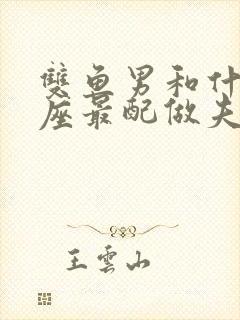 雙魚男和什
座最配做夫
王雲山